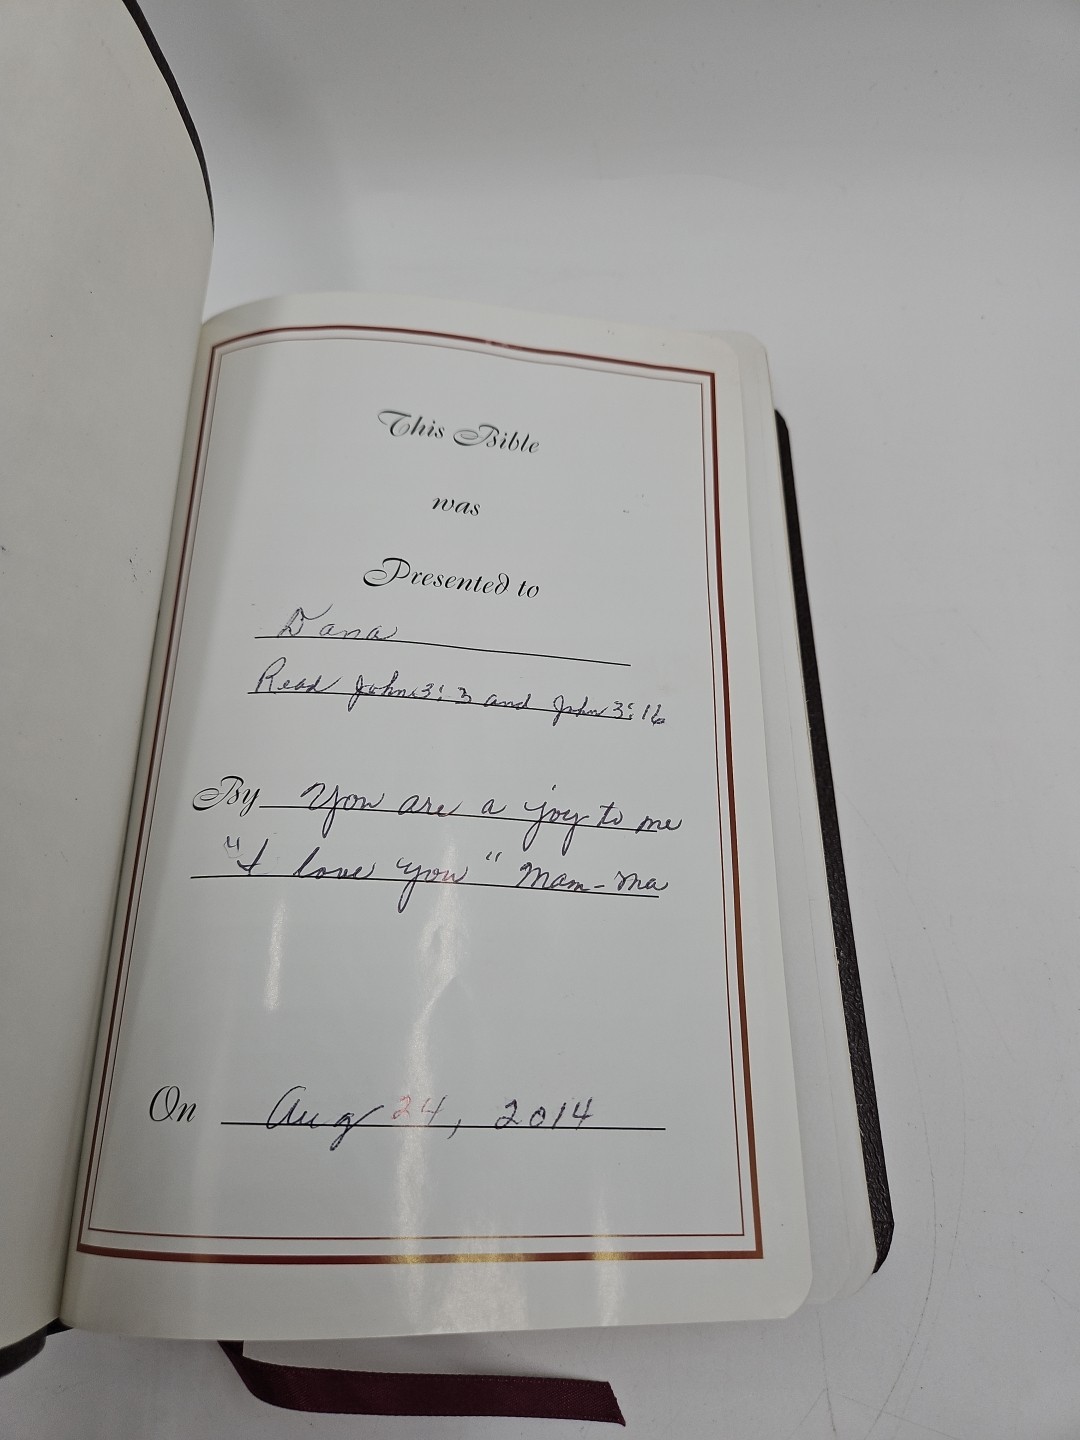 This Bible
was
Presented to
Dana
Read John 3:3 and John 3:16
By You are a joy to me
"I love you" Mam-ma
On Aug 24, 2014